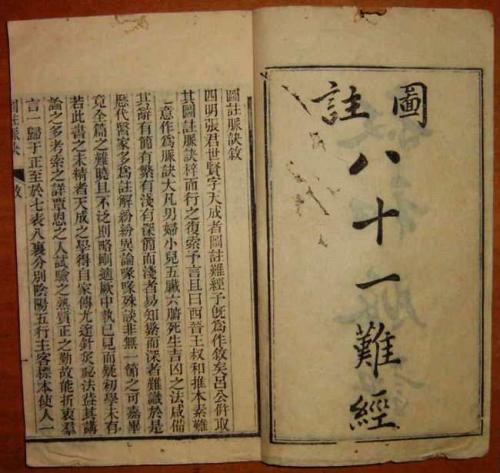 圖註
八十一難經
圖註脈訣敘
四明張君世賢字天成者圖註難經予旣爲作敘矣呂公併取
其圖註脈訣梓而行之復索予言且曰西晉王叔和推本素難
之意作爲脈訣大凡男婦小兒五臟六腑死生吉凶之法咸備
其謌有簡有繁有淺有深簡而淺者易知繁而深者難識於是
歷代賢家多爲註解紛紛異論喙喙殊談非無一簡之可嘉畢
竟全篇之難曉且不泛則略剛適厥中執已見而疑初學未有
若此書之未精者天成之學得自家傳尤邃針灸祕法葢其講
論之多考索之詳單恩之人試驗之熟質正之勤故能折衷羣
言一歸于正至於七表八裏分別陰陽五行主客標本使人一
圖註脈 敘